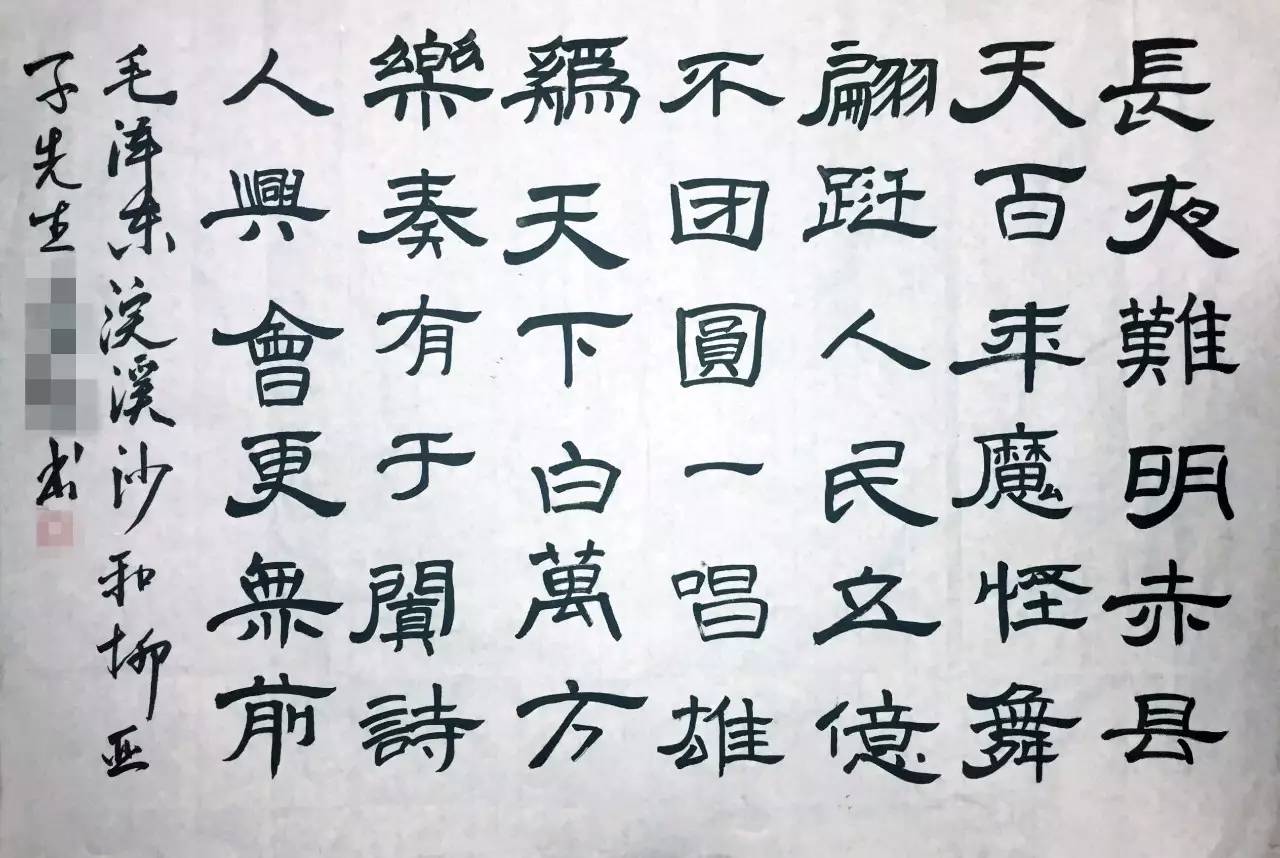 長夜難明赤县
天百年魔怪舞
翩跹人民五億
不团圓一唱雄
鷄天下白萬方
樂奏有于闐詩
人興會更無前
毛泽东浣溪沙和柳亚
子先生 书